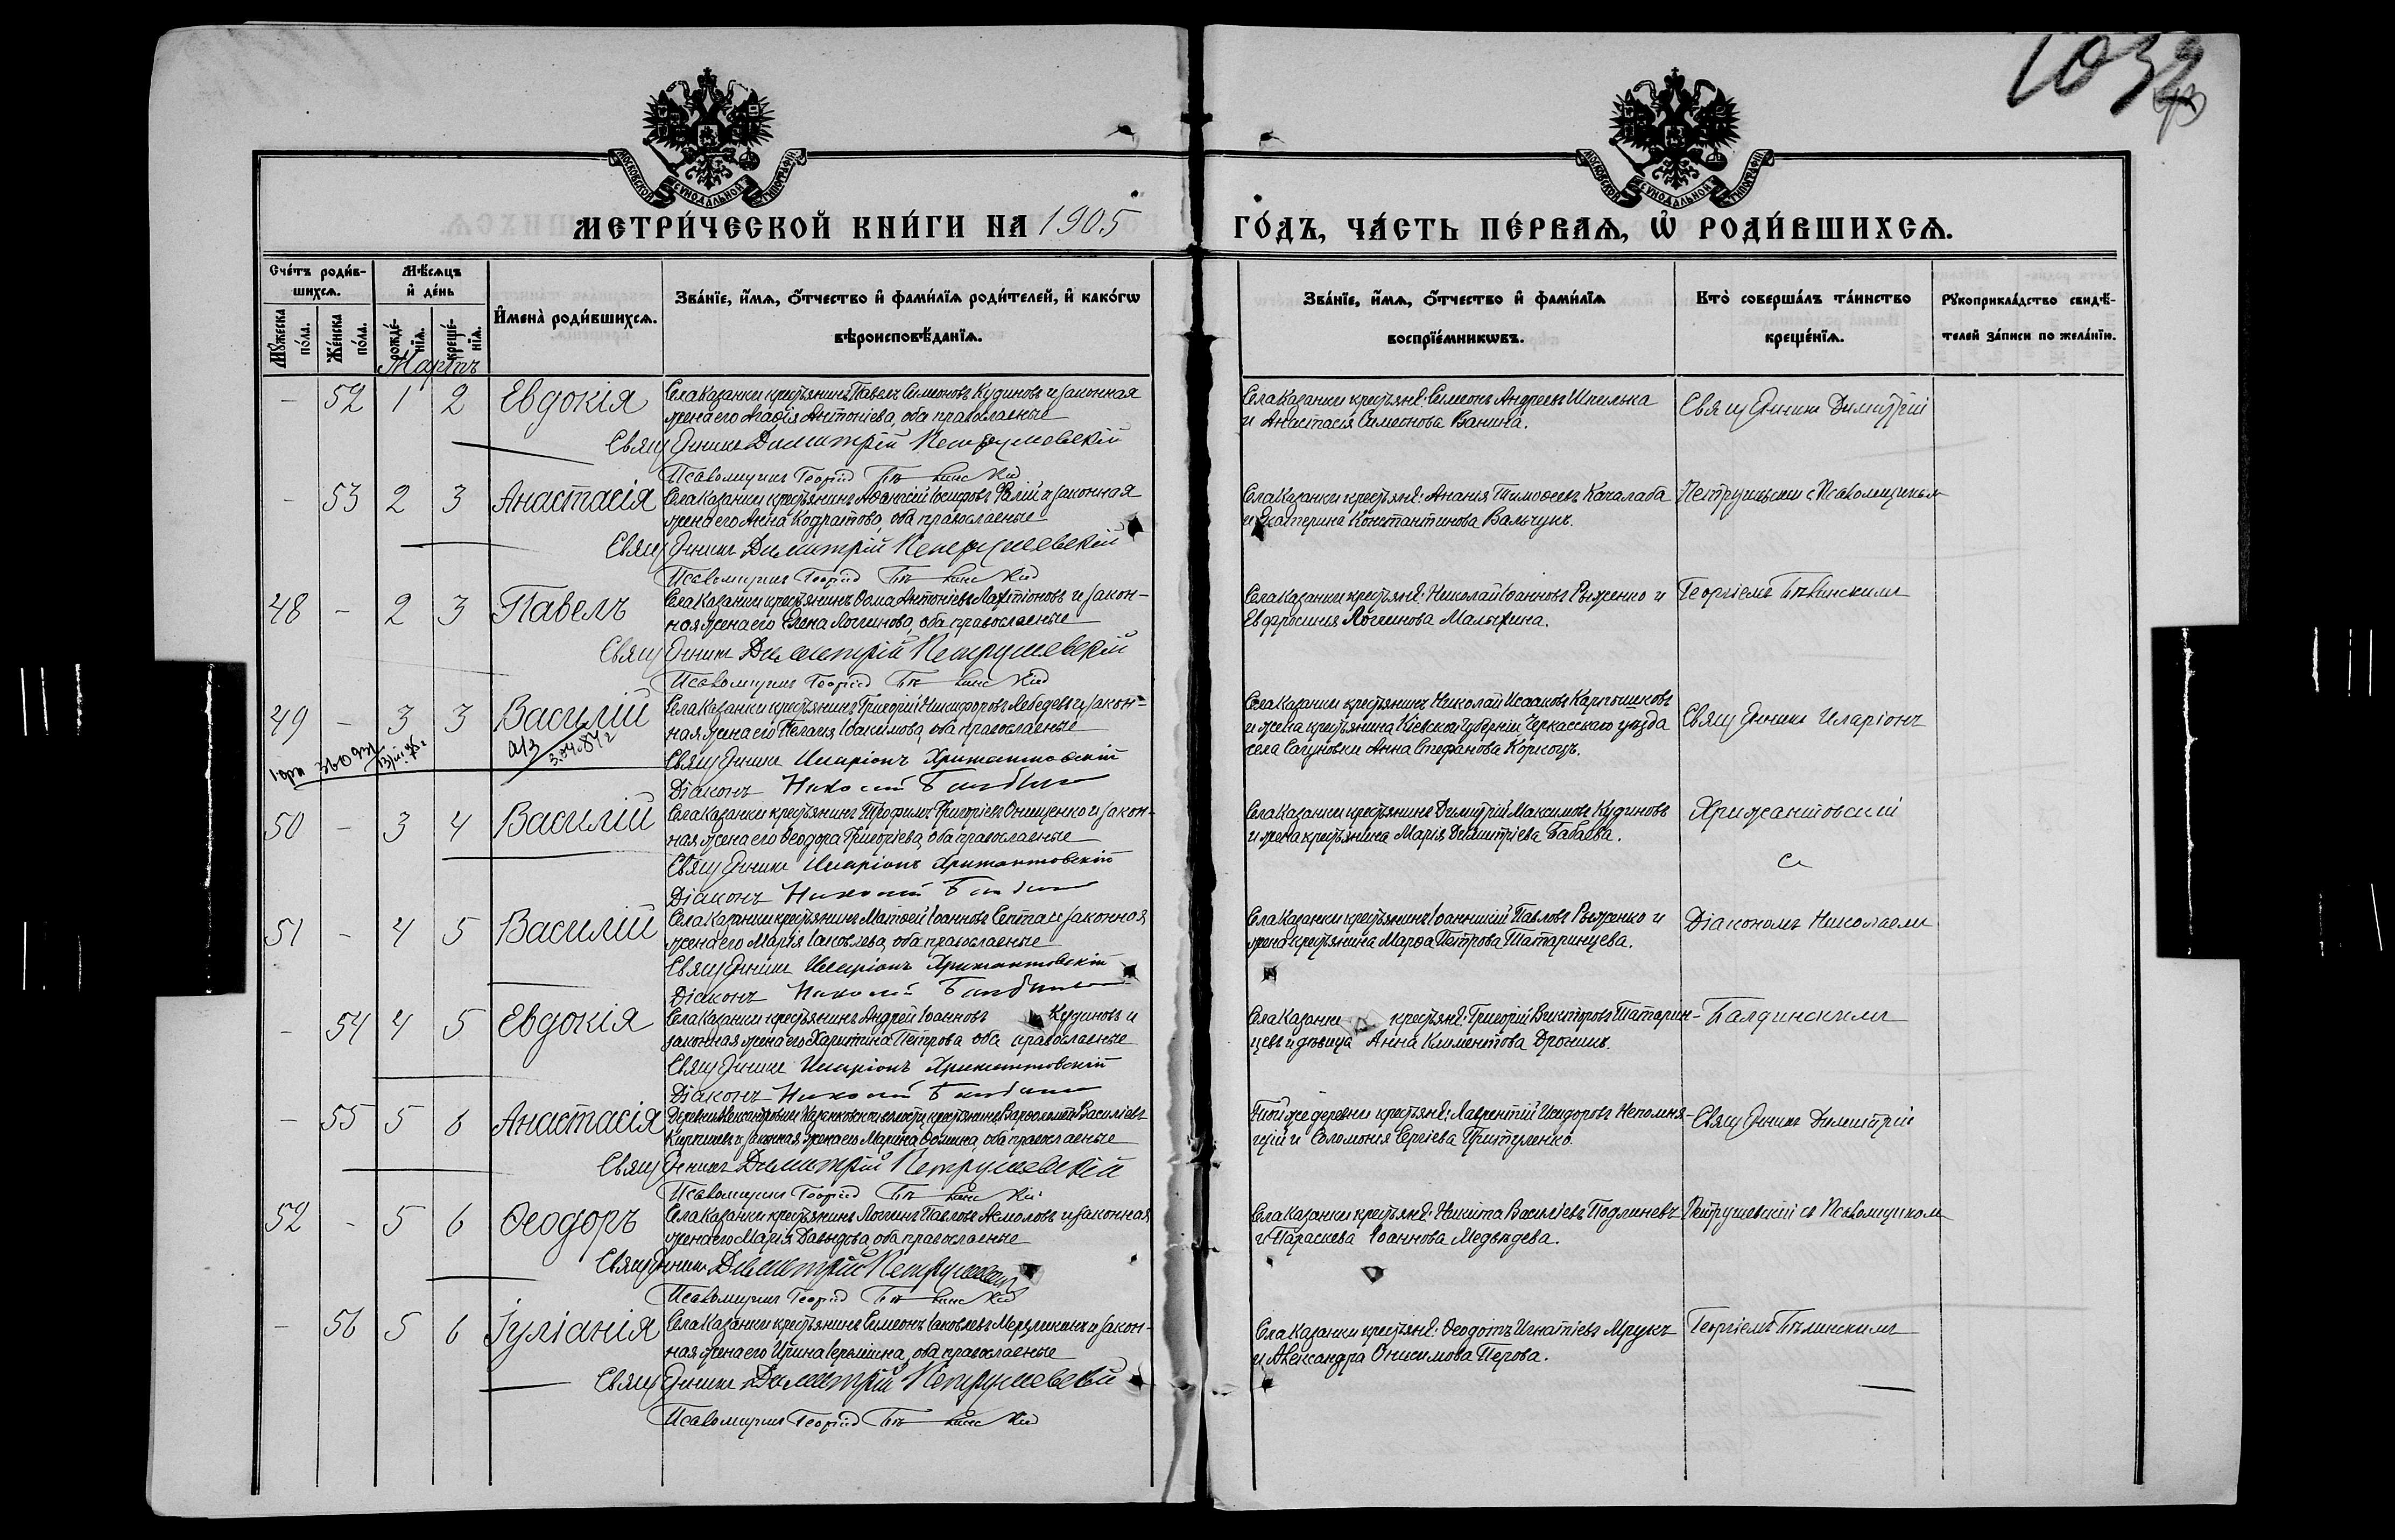 1032
МОСКОВСКОЙ СѴНОДАЛЬНОЙ ТИПОГРАФІИ
МОСКОВСКОЙ СѴНОДАЛЬНОЙ ТИПОГРАФІИ
МЕТРИ́ЧЕСКОЙ КНИ́ГИ НА 1905
ГО́ДЪ, ЧА́СТЬ ПЕ́РВАѦ, Ѡ҆ РОДИ́ВШИХСѦ.
Сче́тъ роди́в-
шихсѧ.
Мꙋ́жеска по́ла.
Же́нска по́ла.
Мѣ́сѧцъ
и҆ де́нь
рожде́-нїѧ.
креще́-нїѧ.
И҆мена̀ роди́вшихсѧ.
Зва́нїе, и҆́мѧ, ѻ҆́тчество и҆ фами́лїѧ роди́телей, и҆ како́гѡ
вѣроисповѣ́данїѧ.
Зва́нїе, и҆́мѧ, ѻ҆́тчество и҆ фами́лїѧ
воспрїе́мникѡвъ.
Кто̀ соверша́лъ та́инство
креще́нїѧ.
Рꙋкоприкла́дство свидѣ́-
телей за́писи по жела́нїю.
Мартъ
- 52 1 2 Евдокія
Села Казанки крестьянинъ Павелъ Симеоновъ Кудиновъ и законная
жена его Агафія Антоніева, оба православные
Священникъ Димитрій Петрушевскій
Псаломщикъ Георгій
Села Казанки крестьяне: Симеонъ Андреевъ Шпилька
и Анастасія Симеонова Ванина.
Священникъ Димитрій
- 53 2 3 Анастасія
Села Казанки крестьянинъ Афанасій Іосифовъ и законная
жена его Анна Кодратова, оба православные
Священникъ Димитрій Петрушевскій
Псаломщикъ Георгій
Села Казанки крестьяне: Ананія Тимофеевъ Качалаба
и Екатерина Константинова Вальчукъ.
Петрушевскій с Псаломщикомъ
48 - 2 3 Павелъ
Села Казанки крестьянинъ Ѳома Антоніевъ Лактіоновъ и закон-
ная жена его Елена Логгинова, оба православные
Священникъ Димитрій Петрушевскій
Псаломщикъ Георгій
Села Казанки крестьяне: Николай Іоанновъ Рыженко и
Евфросинія Логгинова Малыхина.
Георгіемъ Бѣлинскимъ
49 - 3 3 Василій
Села Казанки крестьянинъ Григорій Никифоровъ Лебедевъ и закон-
ная жена его Пелагія Іоакимова, оба православные
Священникъ Иларіонъ Хрижантовскій
Діаконъ Николай
Села Казанки крестьянинъ Николай Исааковъ Карпышковъ
и жена крестьянина Кіевской губерніи, Черкасскаго уѣзда
села Сагуновки Анна Стефанова Коркоцъ.
Священникъ Иларіонъ
50 - 3 4 Василій
Села Казанки крестьянинъ Трофимъ Григоріевъ Онищенко и закон-
ная жена его Ѳеодора Григоріева, оба православные
Священникъ Иларіонъ Хрижантовскій
Діаконъ Николай
Села Казанки крестьянинъ Димитрій Максимовъ Кудиновъ
и жена крестьянина Марія Димитріева Бабаева.
Хрижантовскій
съ
51 - 4 5 Василій
Села Казанки крестьянинъ Матѳей Іоанновъ Септа и законная
жена его Марія Іаковлева, оба православные
Священникъ Иларіонъ Хрижантовскій
Діаконъ Николай
Села Казанки крестьянинъ Іоанникій Павловъ Рыженко и
жена крестьянина Марѳа Петрова Татаринцева.
Діакономъ Николаемъ
- 54 4 5 Евдокія
Села Казанки крестьянинъ Андрей Іоанновъ Кудиновъ и
законная жена его Харитина Петрова оба православные
Священникъ Иларіонъ Хрижантовскій
Діаконъ Николай
Села Казанки крестьяне: Григорій Викторовъ Татарин-
цевъ и дѣвица Анна Климентова Дрочишъ.
Балдинскимъ
- 55 5 6 Анастасія
Деревни Александровки Казанковской волости, крестьянинъ Варѳоломей Василіевъ
и законная жена его Марина Ѳомина, оба православные
Священникъ Димитрій Петрушевскій
Псаломщикъ Георгій
Той же деревни крестьяне: Лаврентій Исидоровъ Непомня-
щій и Соломонія Сергіева Притуленко.
Священникъ Димитрій
52 - 5 6 Ѳеодоръ
Села Казанки крестьянинъ Логгинъ Павловъ Асмоловъ и законная
жена его Марія Давыдова, оба православные
Священникъ Димитрій Петрушевскій
Псаломщикъ Георгій
Села Казанки крестьяне: Никита Василіевъ Подлиневъ
и Параскева Іоаннова Медвѣдева.
Петрушевскій съ Псаломщикомъ
- 56 5 6 Іуліанія
Села Казанки крестьянинъ Симеонъ Іаковлевъ и закон-
ная жена его Ирина Герасимова, оба православные
Священникъ Димитрій Петрушевскій
Псаломщикъ Георгій
Села Казанки крестьяне: Ѳеодотъ Игнатіевъ Мрукъ
и Александра Онисимова Перова.
Георгіемъ Бѣлинскимъ